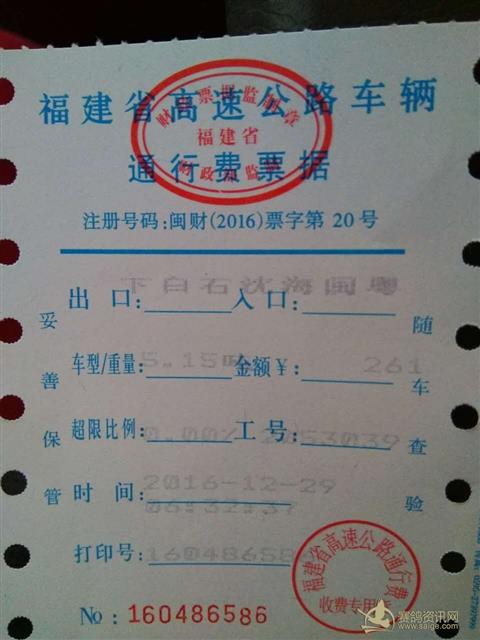 福建省高速公路车辆
通行费票据
财政票据监制章
福建省
财政部监制
注册号码:闽财(2016)票字第 20号
下白石沈海闽粤
出口: 入口:
5.15吨 261
车型/重量: 金额¥:
超限比例: 工号:
0.00% 2053039
2016-12-29
时间:
06:32:37
打印号: 160486586
No: 160486586
妥善保管
随车查验
福建省高速公路通行费
收费专用章
赛鸽资讯网
www.saige.com